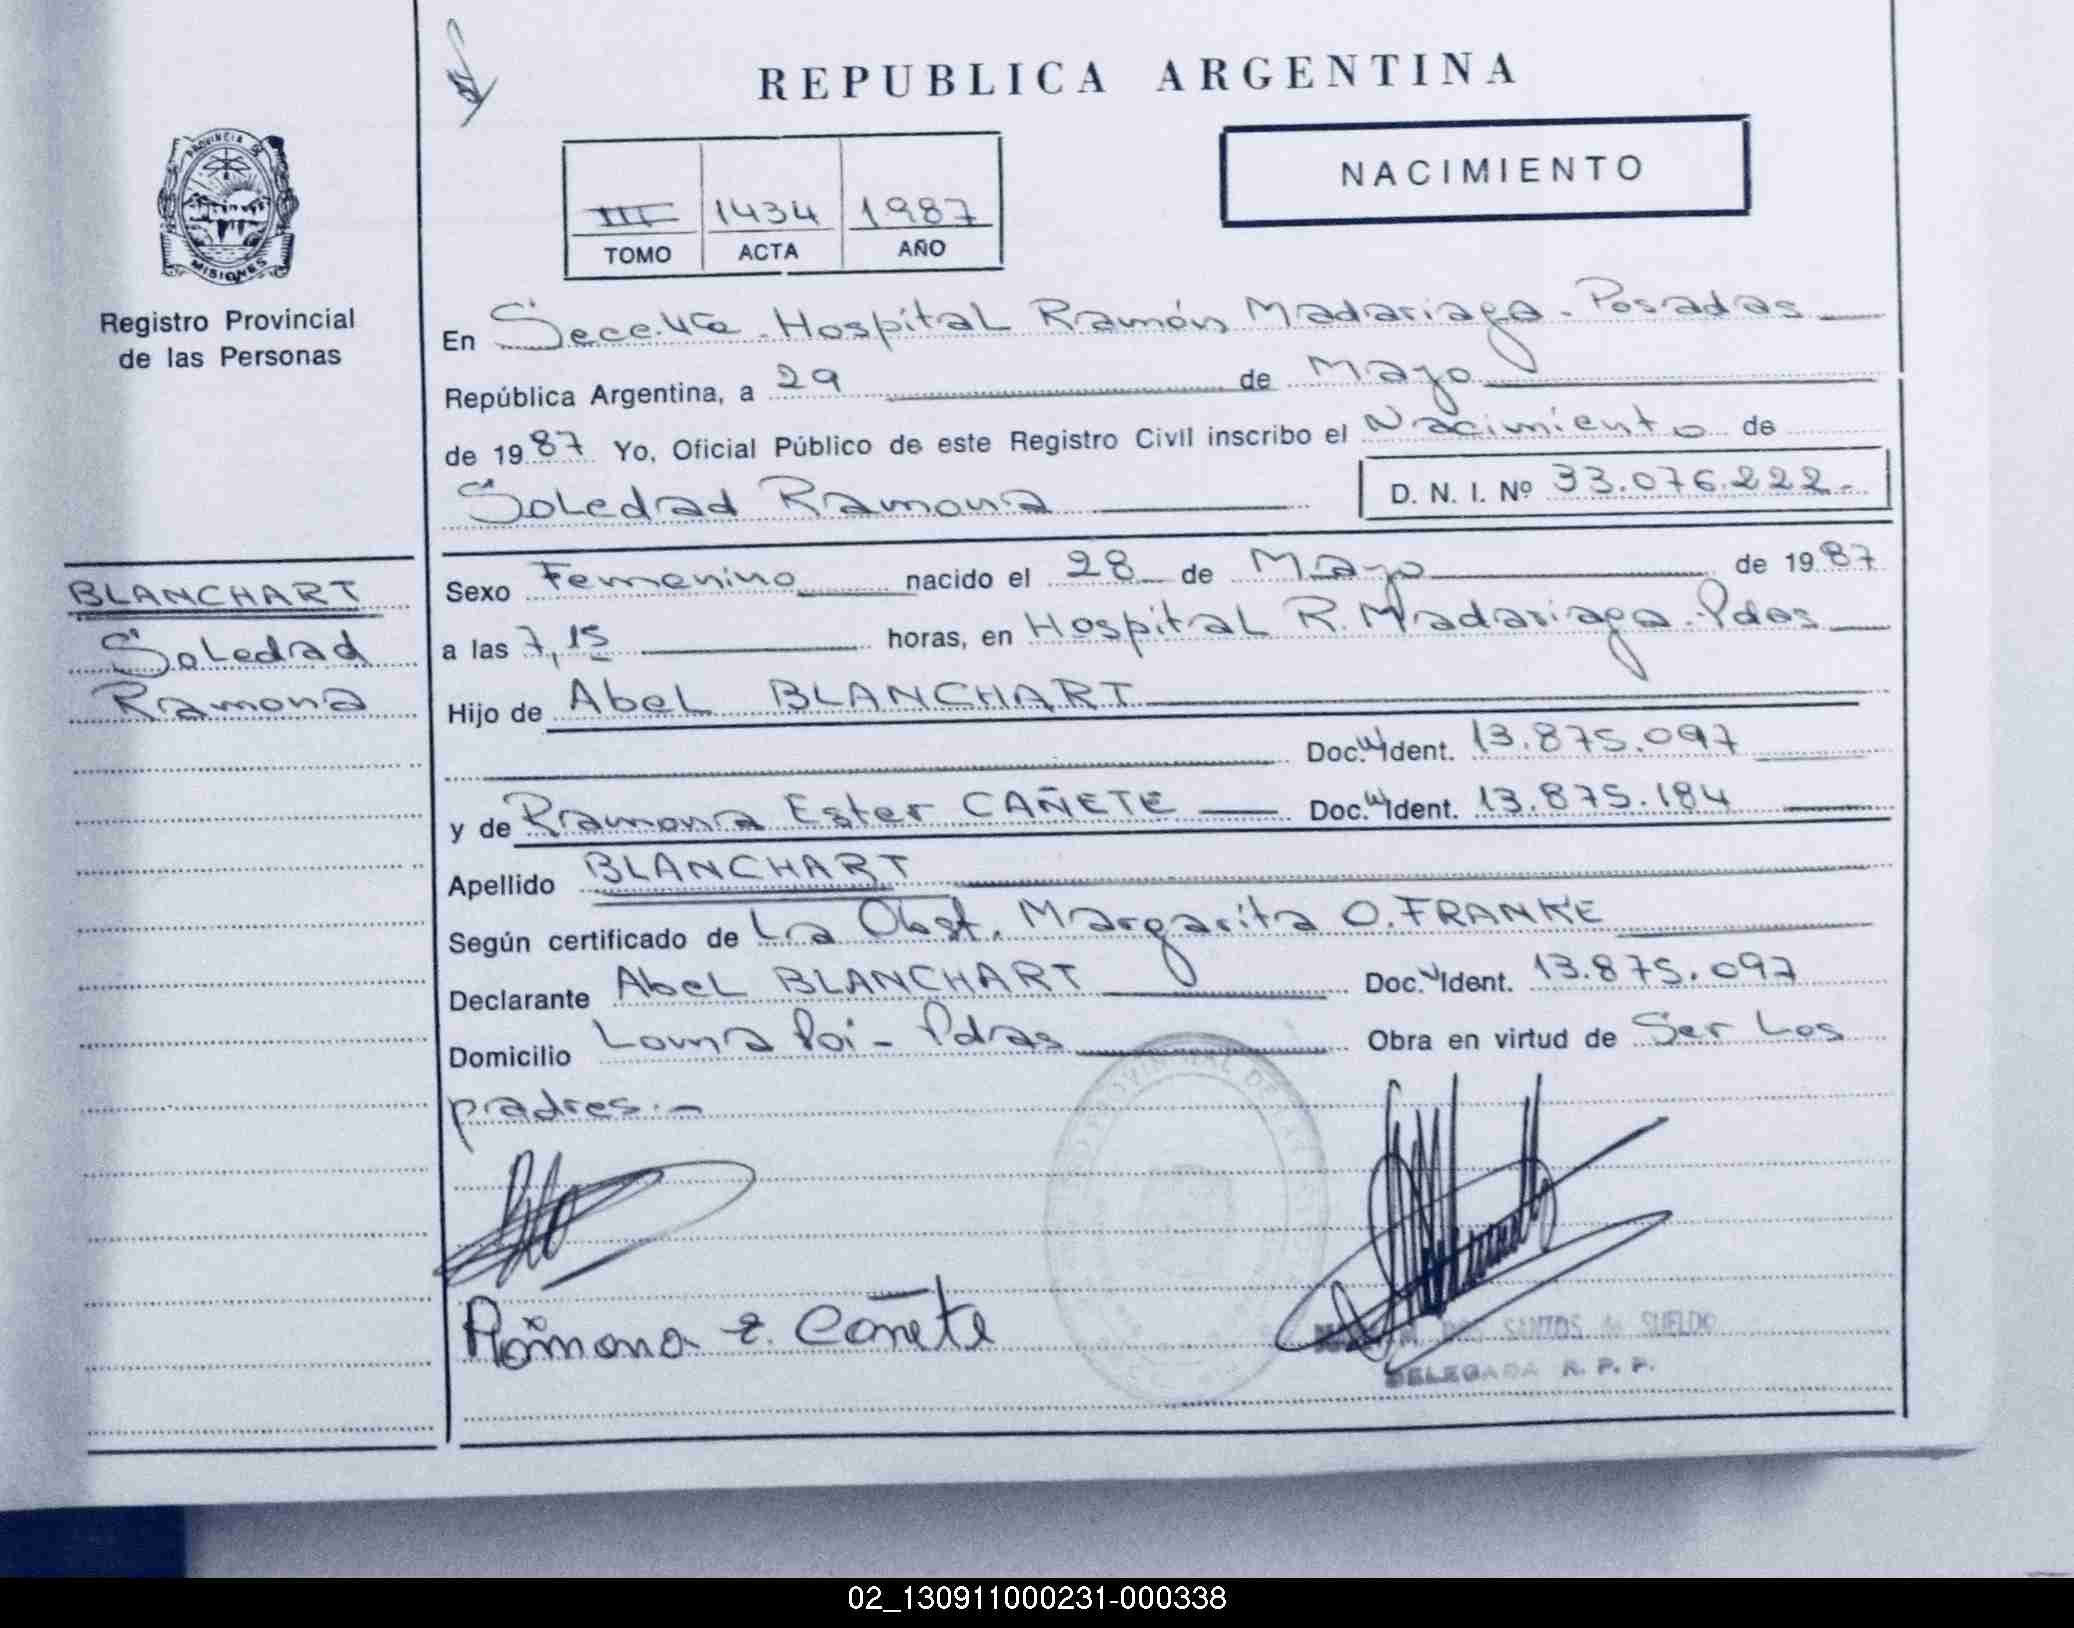 REPUBLICA ARGENTINA
NACIMIENTO
III 1434 1987
TOMO ACTA AÑO
PROVINCIA DE
MISIONES
Registro Provincial
de las Personas
En Hospital Ramón Madariaga - Posadas
República Argentina, a 29 de Mayo
de 1987 Yo, Oficial Público de este Registro Civil inscribo el Nacimiento de
Soledad Ramona
D. N. I. Nº 33.076.222.-
BLANCHART
Soledad
Ramona
Sexo Femenino nacido el 28 de Mayo de 1987
a las 7,15 horas, en Hospital R. Madariaga - Pdas
Hijo de Abel BLANCHART
Doc. Ident. 13.875.097
y de Ramona Ester CAÑETE Doc. Ident. 13.875.184
Apellido BLANCHART
Según certificado de La Obst. Margarita O. FRANKE
Declarante Abel BLANCHART Doc. Ident. 13.875.097
Domicilio Loma Poi - Pdas Obra en virtud de Ser Los
padres.-
Ramona E. Cañete
DOS SANTOS de SUELDO
DELEGADA R. P. P.
02_130911000231-000338